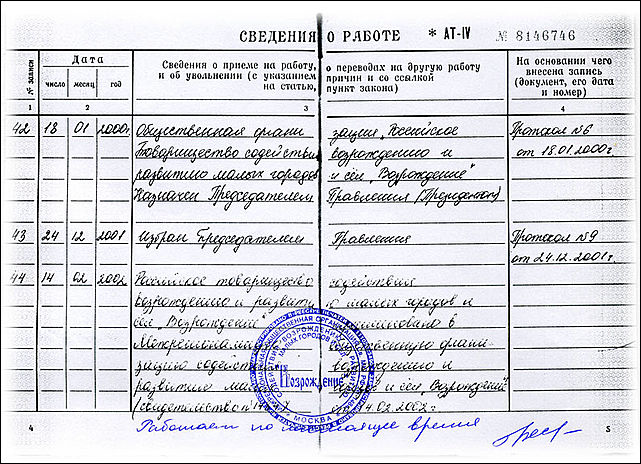 СВЕДЕНИЯ О РАБОТЕ * АТ-IV № 8146746
№ записи
Дата
число месяц год
Сведения о приеме на работу, о переводах на другую работу
и об увольнении (с указанием причин и со ссылкой
на статью, пункт закона)
На основании чего
внесена запись
(документ, его дата
и номер)
1 2 3 4
42 18 01 2000г. Общественная организация „Российское Протокол №6
Товарищество содействия возрождению и от 18.01.2000г.
развитию малых городов и сёл „Возрождение"
Назначен Председателем Правления (Президентом)
43 24 12 2001 Избран Председателем Правления Протокол №9
от 24.12.2001г.
44 14 02 2002 Российское товарищество содействия
возрождению и развитию малых городов и
сёл „Возрождение" переименовано в
зацию содействия возрождению и
развитию малых городов и сёл „Возрождение"
Возрождение
МОСКВА
4 Работает по настоящее время 5